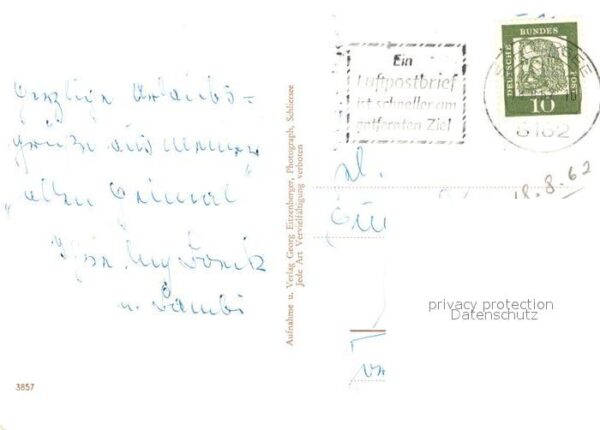 herzliche Urlaubs-
grüße aus meiner
"alten Heimat"
Ihre
u.
Aufnahme u. Verlag Georg Eitzenberger, Photograph, Schliersee
Jede Art Vervielfältigung verboten
3857
Ein
Luftpostbrief
ist schneller am
entfernten Ziel
DEUTSCHE BUNDESPOST
10
8162
18.8.62
privacy protection
Datenschutz